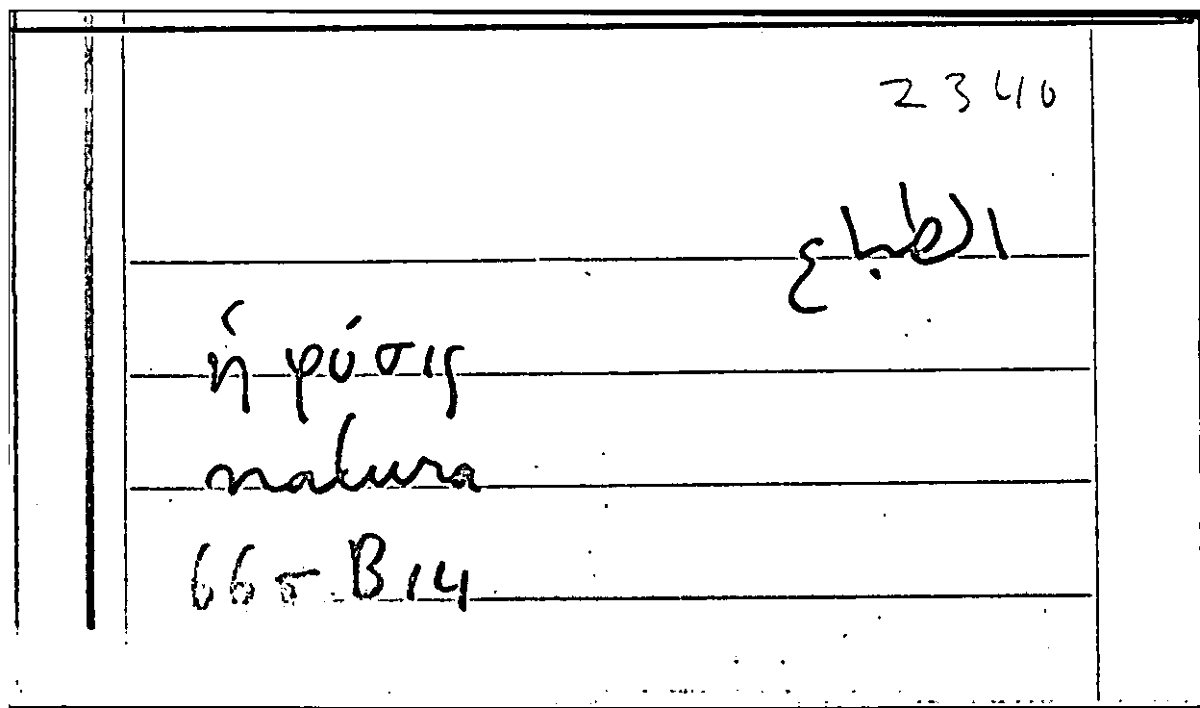 2340
الطباع
ἡ φύσις
natura
665 B 14